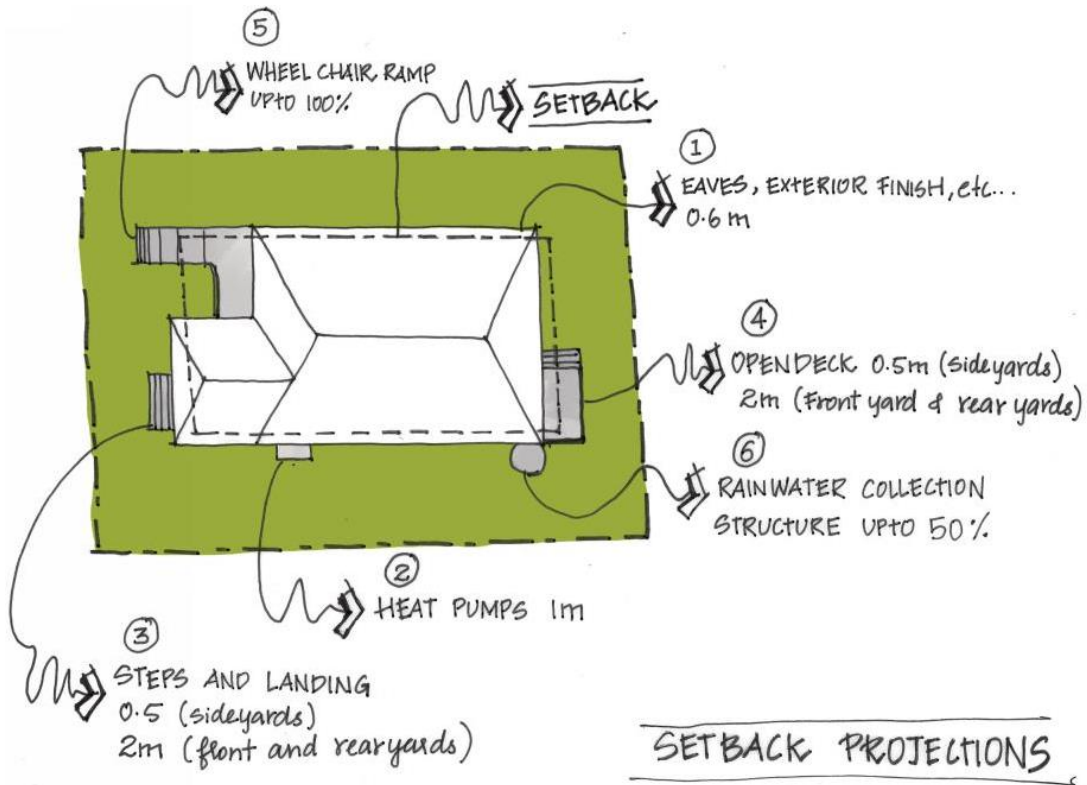 5
WHEEL CHAIR RAMP
UPTO 100%
SETBACK
1
EAVES, EXTERIOR FINISH, etc...
0.6m
4
OPEN DECK 0.5m (Sideyards)
2m (Front yard & rear yards)
6
RAINWATER COLLECTION
STRUCTURE UPTO 50%
2
HEAT PUMPS 1m
3
STEPS AND LANDING
0.5 (sideyards)
2m (front and rearyards)
SETBACK PROJECTIONS